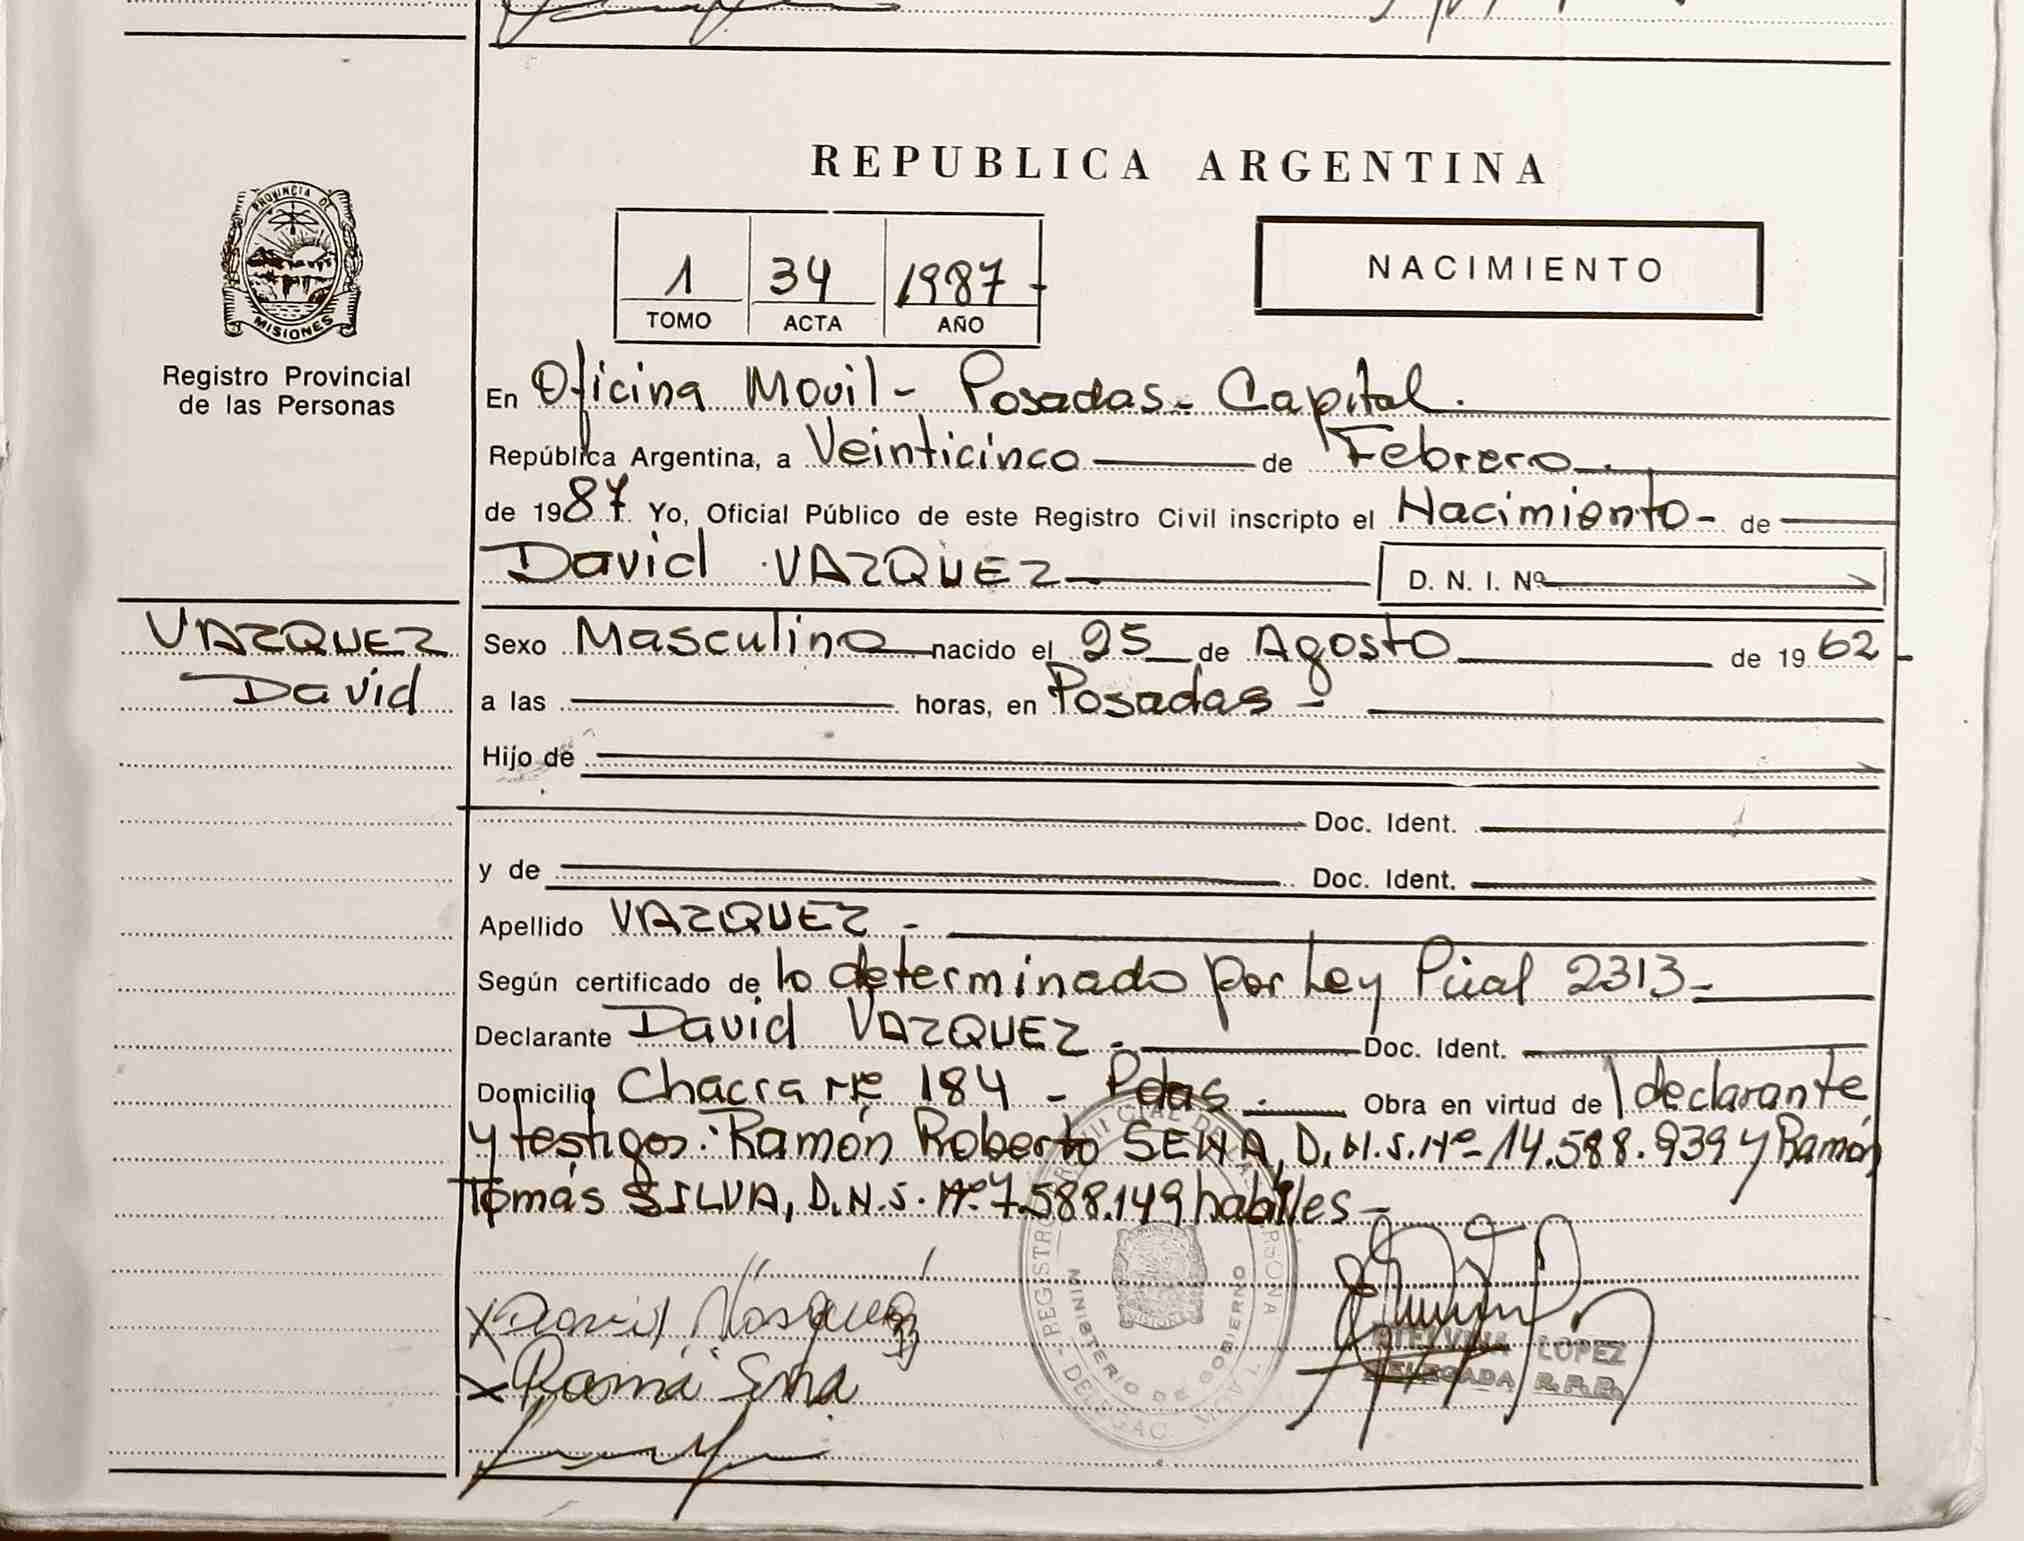 REPUBLICA ARGENTINA
PROVINCIA DE
MISIONES
Registro Provincial
de las Personas
1 34 1987 -
TOMO ACTA AÑO
NACIMIENTO
En Oficina Movil - Posadas - Capital.
República Argentina, a Veinticinco de Febrero.
de 1987 Yo, Oficial Público de este Registro Civil inscripto el Nacimiento - de
David VAZQUEZ D. N. I. Nº
VAZQUEZ
David
Sexo Masculino nacido el 25 de Agosto de 1962
a las horas, en Posadas -
Hijo de
Doc. Ident.
y de Doc. Ident.
Apellido VAZQUEZ -
Según certificado de lo determinado por Ley Pcial 2313 -
Declarante David VAZQUEZ - Doc. Ident.
Domicilio Chacra Nº 184 - Pdas. Obra en virtud de declarante
y testigos: Ramón Roberto SENA, D.N.I. Nº 14.588.939 y Ramón
Tomás SILVA, D.N.I. Nº 7.588.149 habiles -
X David Vasquez
X Ramón Sena
MINISTERIO DE GOBIERNO
ETELVINA LOPEZ
DELEGADA R.P.P.